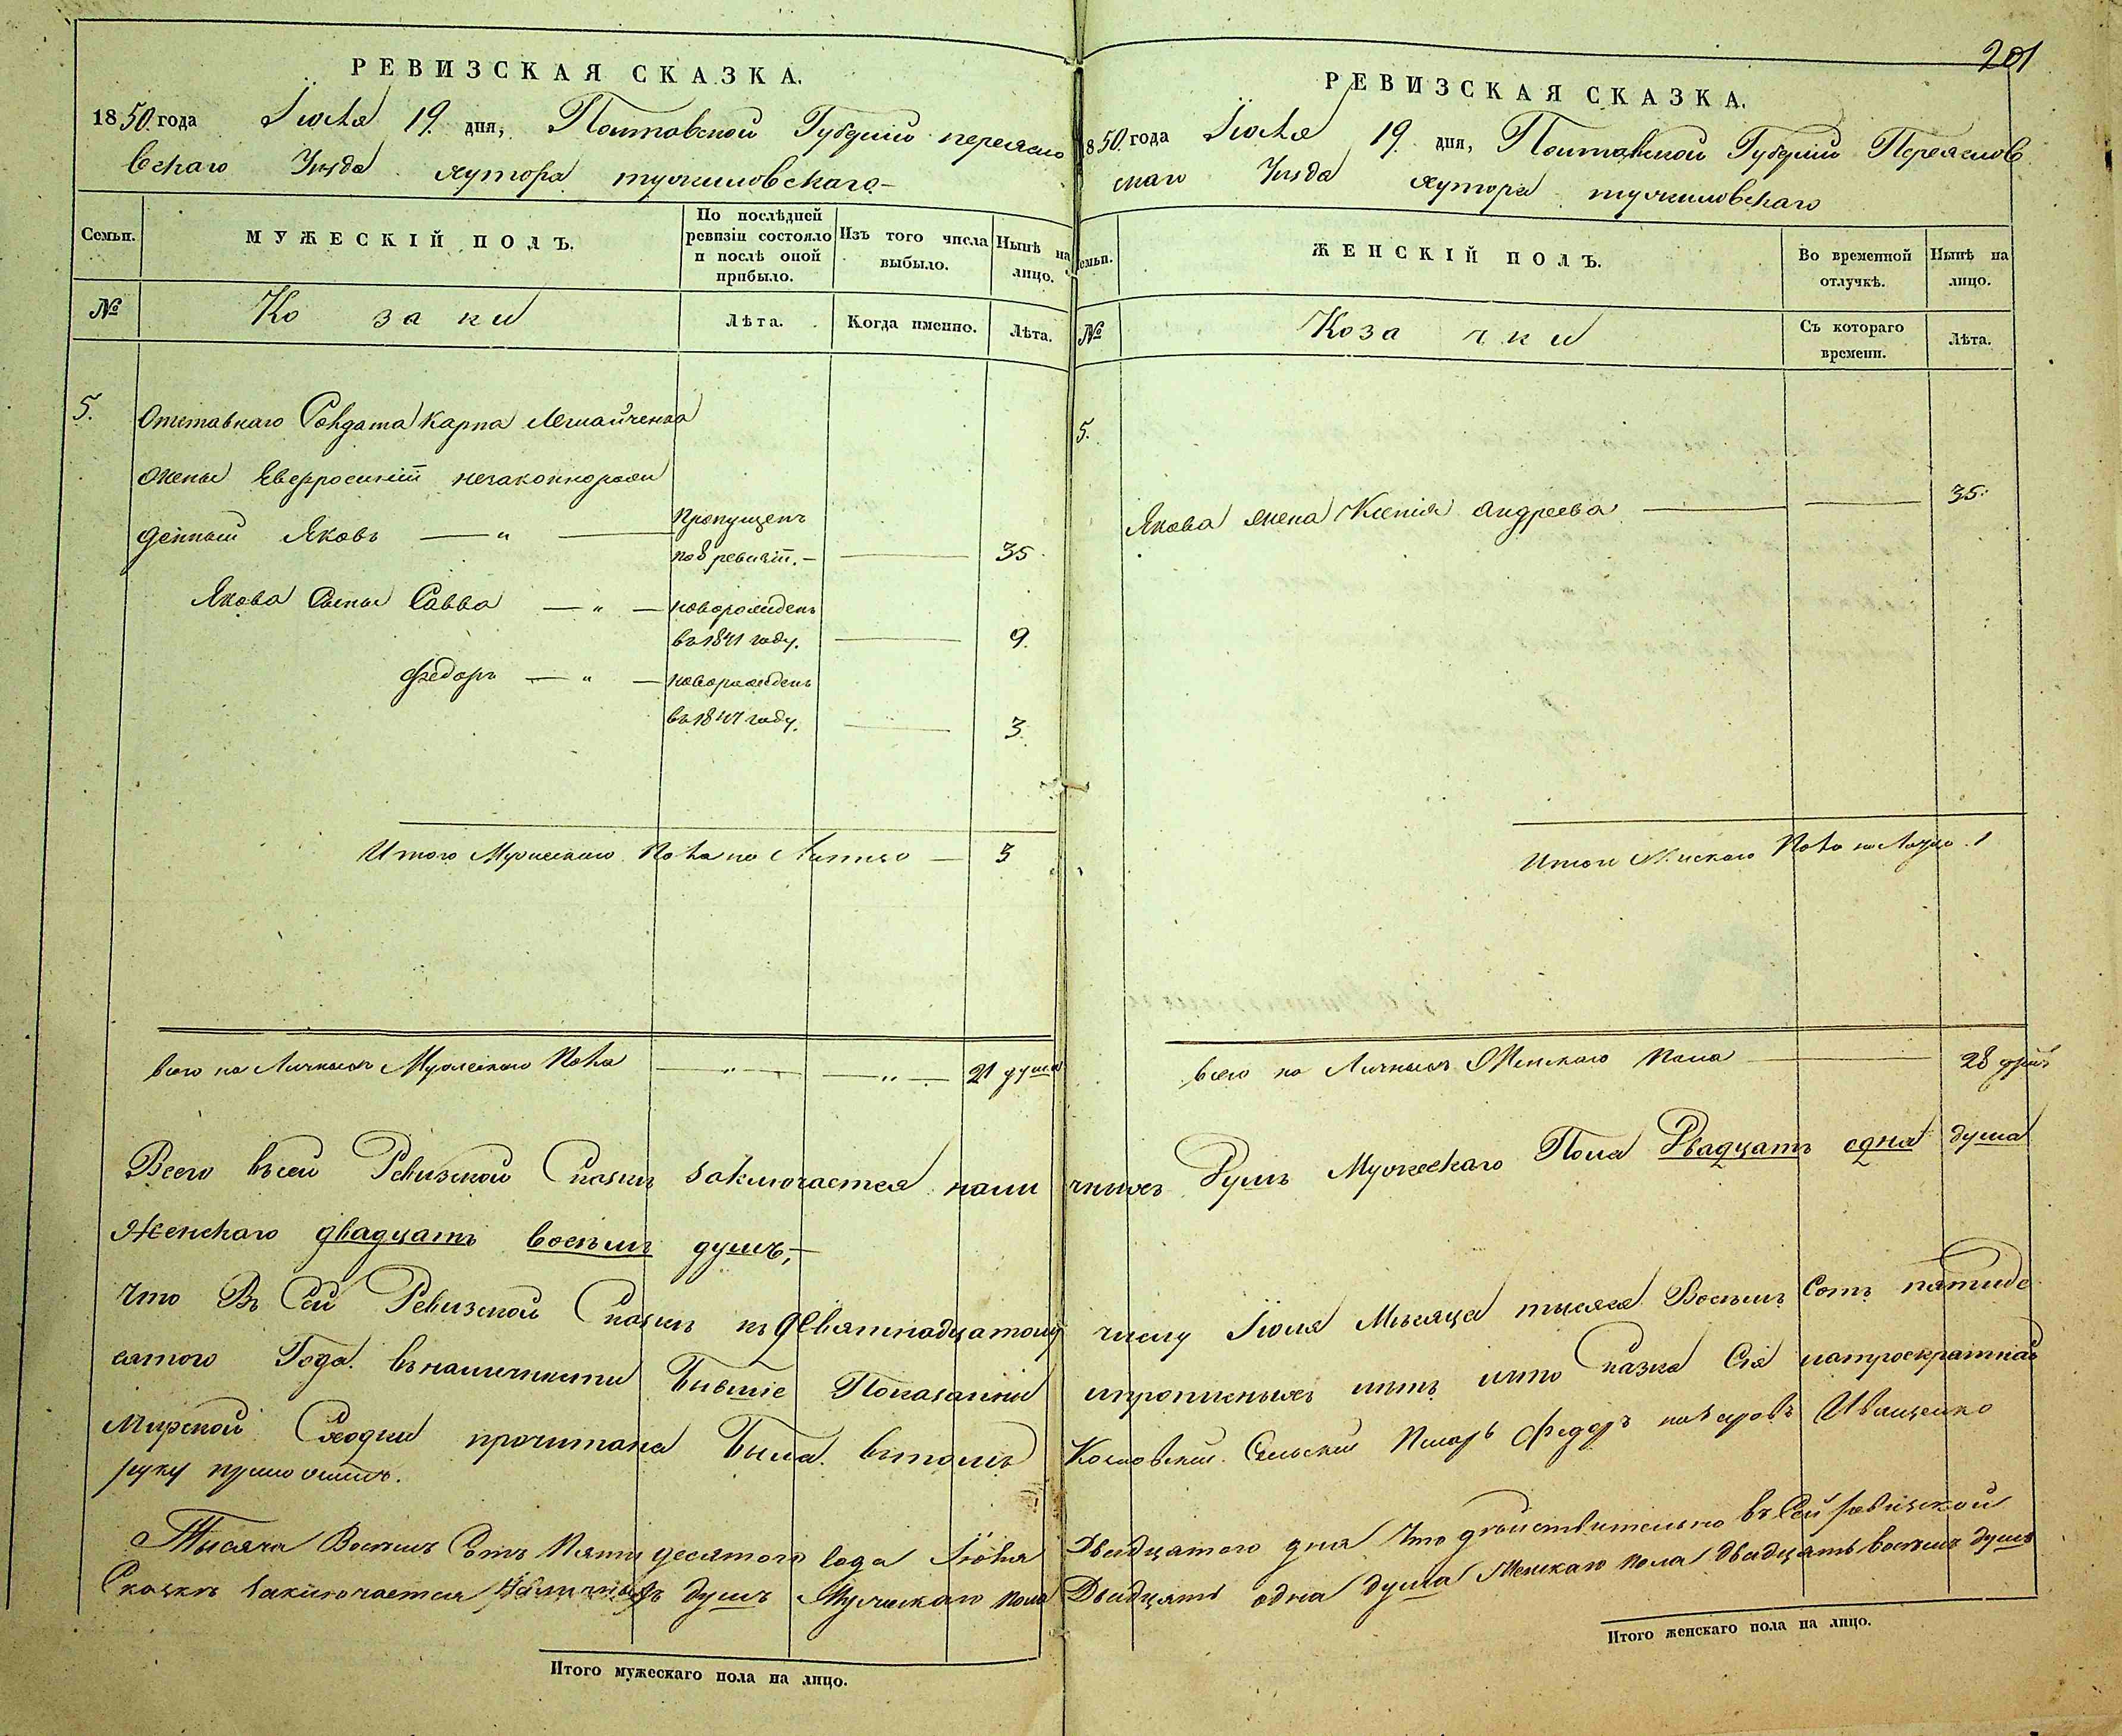 201
РЕВИЗСКАЯ СКАЗКА.
1850 года Іюля 19 дня, Полтавской Губерніи переясло
вскаго Уезда хутора
Семьи.
МУЖЕСКІЙ ПОЛЪ.
По послѣдней
ревизіи состояло
и послѣ оной
прибыло.
Изъ того числа
выбыло.
Нынѣ на
лицо.
№
Ко за ки
Лѣта.
Когда именно.
Лѣта.
5. Отставнаго Солдата Карпа
жены Евфросиніи незаконнорож
денный Яковъ — „ — Пропущенъ
по 8 ревизіи. — 35
Якова Сыны Савва — „ — новорожденъ
въ 1841 году. 9.
Федоръ — „ — новорожденъ
въ 1847 году. 3.
Итого Мужескаго Пола на Лицо — 3
всего на Личныхъ Мужескаго Пола — „ — — „ — 21 душа
РЕВИЗСКАЯ СКАЗКА.
1850 года Іюля 19 дня, Полтавской Губерніи Переяслов
скаго Уезда хутора
Семьи.
ЖЕНСКІЙ ПОЛЪ.
Во временной
отлучкѣ.
Нынѣ на
лицо.
№
Коза чки
Съ котораго
времени.
Лѣта.
5.
Якова жена Ксенія Андреева 35.
Итого Женскаго Пола на Лицо. 1
всего на Личныхъ Женскаго Пола 28 душъ
Всего въ сей Ревизской Сказкѣ заключается нали чныхъ Душъ Мужескаго Пола Двадцать одна душа
Женскаго двадцать восемь душъ, —
Что Въ Сей Ревизской Сказкѣ къ Девятнадцатому числу Іюля Мѣсяца тысяча Восемь Сотъ пятиде
сятого Года. въ наличности Бывшіе Показанны
Мирской Сходки прочитана Была. Сельский Писарь Федоръ Иващенко
руку приложилъ.
Тысяча Восемь Сотъ Пяти десятого года Іюля Двадцатого дня Что дѣйствительно въ Сей Ревизской
Сказкѣ Заключается Наличныхъ душъ Мужскаго пола Двадцать одна душа Женскаго пола двадцать восемь душъ
Итого мужескаго пола на лицо.
Итого женскаго пола на лицо.